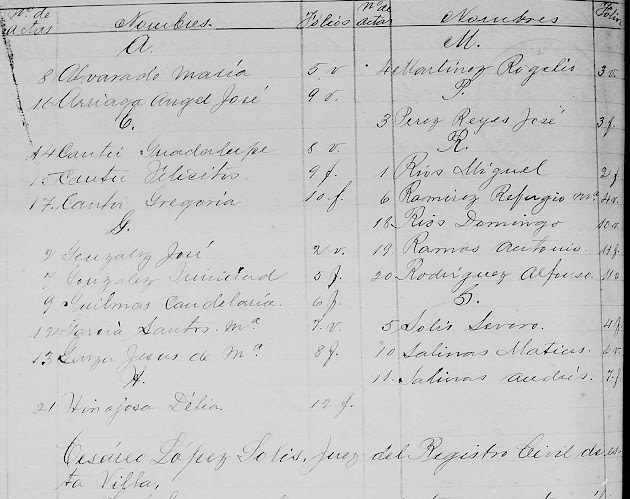 Nº de actas Nombres. Folios
A.
8 Alvarado María 5 v.
16 Arriaga Angel José 9 v.
C.
14 Cantú Guadalupe 8 v.
15 Cantú Félicitos 9 f.
17 Cantú Gregoria 10 f.
G.
2 Gonzalez José 2 v.
7 Gonzalez Trinidad 5 f.
9 Guilmas Candelaria. 6 f.
12 García Santos. Mª 7. v.
13 Garza Jesus de Mª. 8 f.
H.
21 Hinojosa Délia. 12 f.
Nº de actas Nombres Folios
M.
4 Martínez Rogelio 3 v.
P.
3 Perez Reyes José 3 f.
R.
1 Rios Miguel 2 f
6 Ramirez Refugio Mª 4 v.
18 Rios Domingo 10 v.
19. Ramos Antonio. 11 f.
20 Rodríguez Alfonso. 11 v
S.
5 Solis Severo. 4 f
10 Salinas Matias. 6 v.
11 Salinas Andrés. 7 f.
Cesáreo López Solis, Juez del Registro Civil de es-
ta Villa,